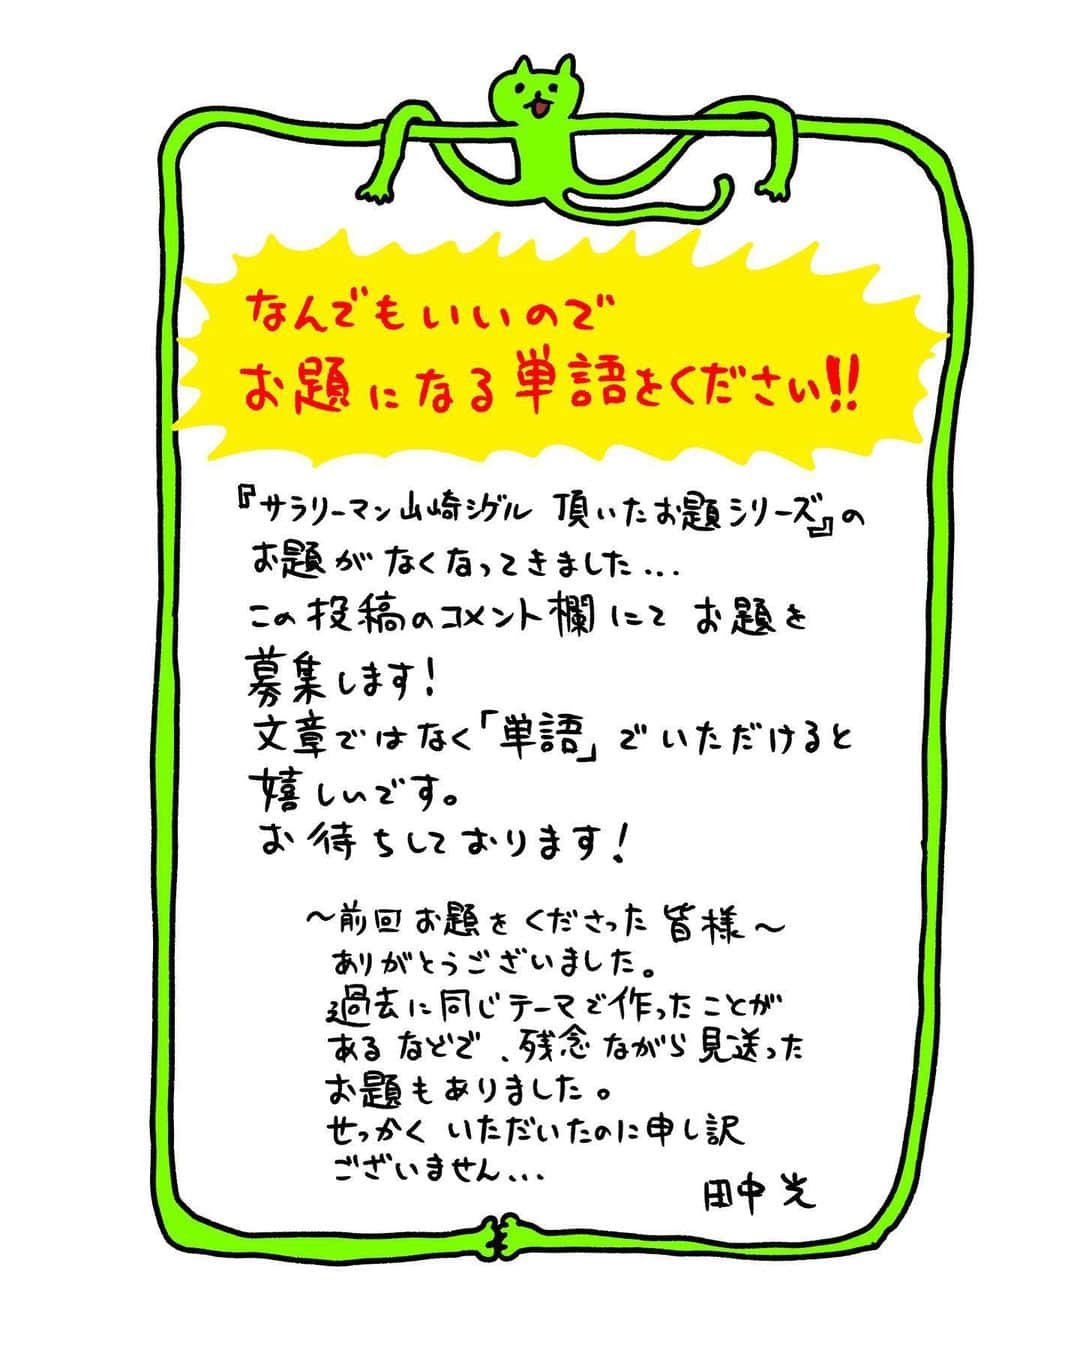 なんでもいいので
お題になる単語をください!!
『サラリーマン山崎シゲル 頂いたお題シリーズ』の
お題がなくなってきました...
この投稿のコメント欄にて お題を
募集します!
文章ではなく「単語」でいただけると
嬉しいです。
お待ちしております!
〜前回お題をくださった皆様〜
ありがとうございました。
過去に同じテーマで作ったことが
あるなどで、残念ながら見送った
お題もありました。
せっかくいただいたのに申し訳
ございません...
田中光